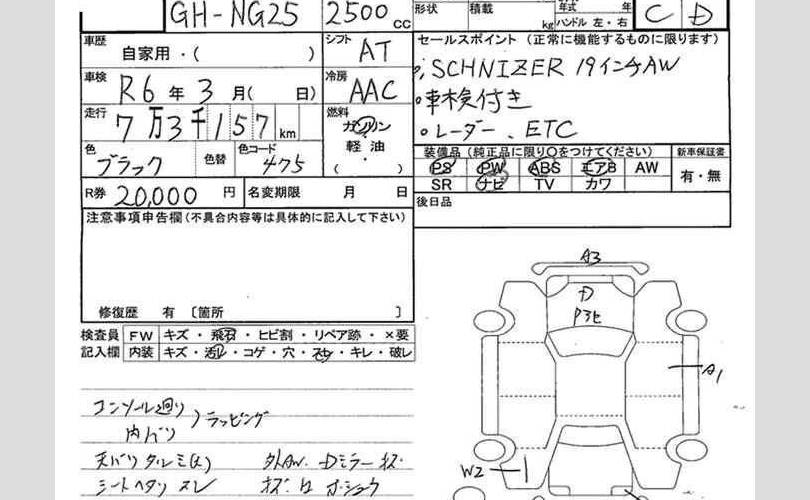 GH-NG25 2500cc 形状 積載 kg 年式 年 ハンドル 左・右 C D
車歴 自家用・( ) シフト AT
セールスポイント (正常に機能するものに限ります)
車検 R6年 3月( 日) 冷房 AAC
SCHNIZER 19インチAW
走行 7万3千157km 燃料 ガソリン 軽油・( )
車検付き
レーダー、ETC
色 ブラック 色替 色コード 475
装備品 (純正品に限り○をつけてください) 新車保証書
PS PW ABS エアB AW 有・無
SR ナビ TV カワ
R券 20,000円 名変期限 月 日
後日品
注意事項申告欄(不具合内容等は具体的に記入して下さい)
修復歴 有 〔箇所 〕
検査員 FW キズ・飛石・ヒビ割・リペア跡・×要
記入欄 内装 キズ・汚レ・コゲ・穴・スレ・キレ・破レ
A3
D
A1
W2
コンソール廻り
内バリ )ラッピング
天バリタルミ(大) 外AW・Dミラーキズ
シートヘタリスレ